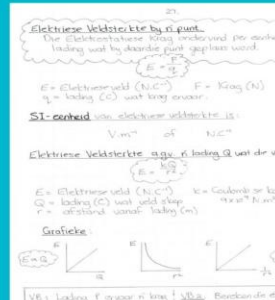 27.
Elektriese Veldsterkte by 'n punt
Die Elektrostatiese krag ondervind per eenheid
lading wat by daardie punt geplaas word.
E = F/q
E = Elektriese veld (N.C⁻¹) F = Krag (N)
q = lading (C) wat krag ervaar.
SI-eenheid van elektriese veldsterkte is:
V.m⁻¹ of N.C⁻¹
Elektriese Veldsterkte a.g.v. 'n lading Q wat die v
E = kQ/r²
E = Elektriese veld (N.C⁻¹) k = Coulomb se k
Q = lading (C) wat veld skep 9x10⁹ N.m²
r = afstand vanaf lading (m)
Grafieke:
E E E
E ∝ Q
Q r² 1/r²
VB: Lading P ervaar 'n krag VB2: Bereken die